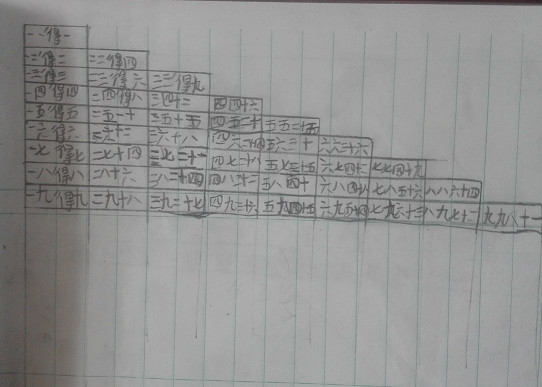 一一得一
一二得二 二二得四
一三得三 二三得六 三三得九
一四得四 二四得八 三四十二 四四十六
一五得五 二五一十 三五十五 四五二十 五五二十五
一六得六 二六十二 三六十八 四六二十四 五六三十 六六三十六
一七得七 二七十四 三七二十一 四七二十八 五七三十五 六七四十二 七七四十九
一八得八 二八十六 三八二十四 四八三十二 五八四十 六八四十八 七八五十六 八八六十四
一九得九 二九十八 三九二十七 四九三十六 五九四十五 六九五十四 七九六十三 八九七十二 九九八十一